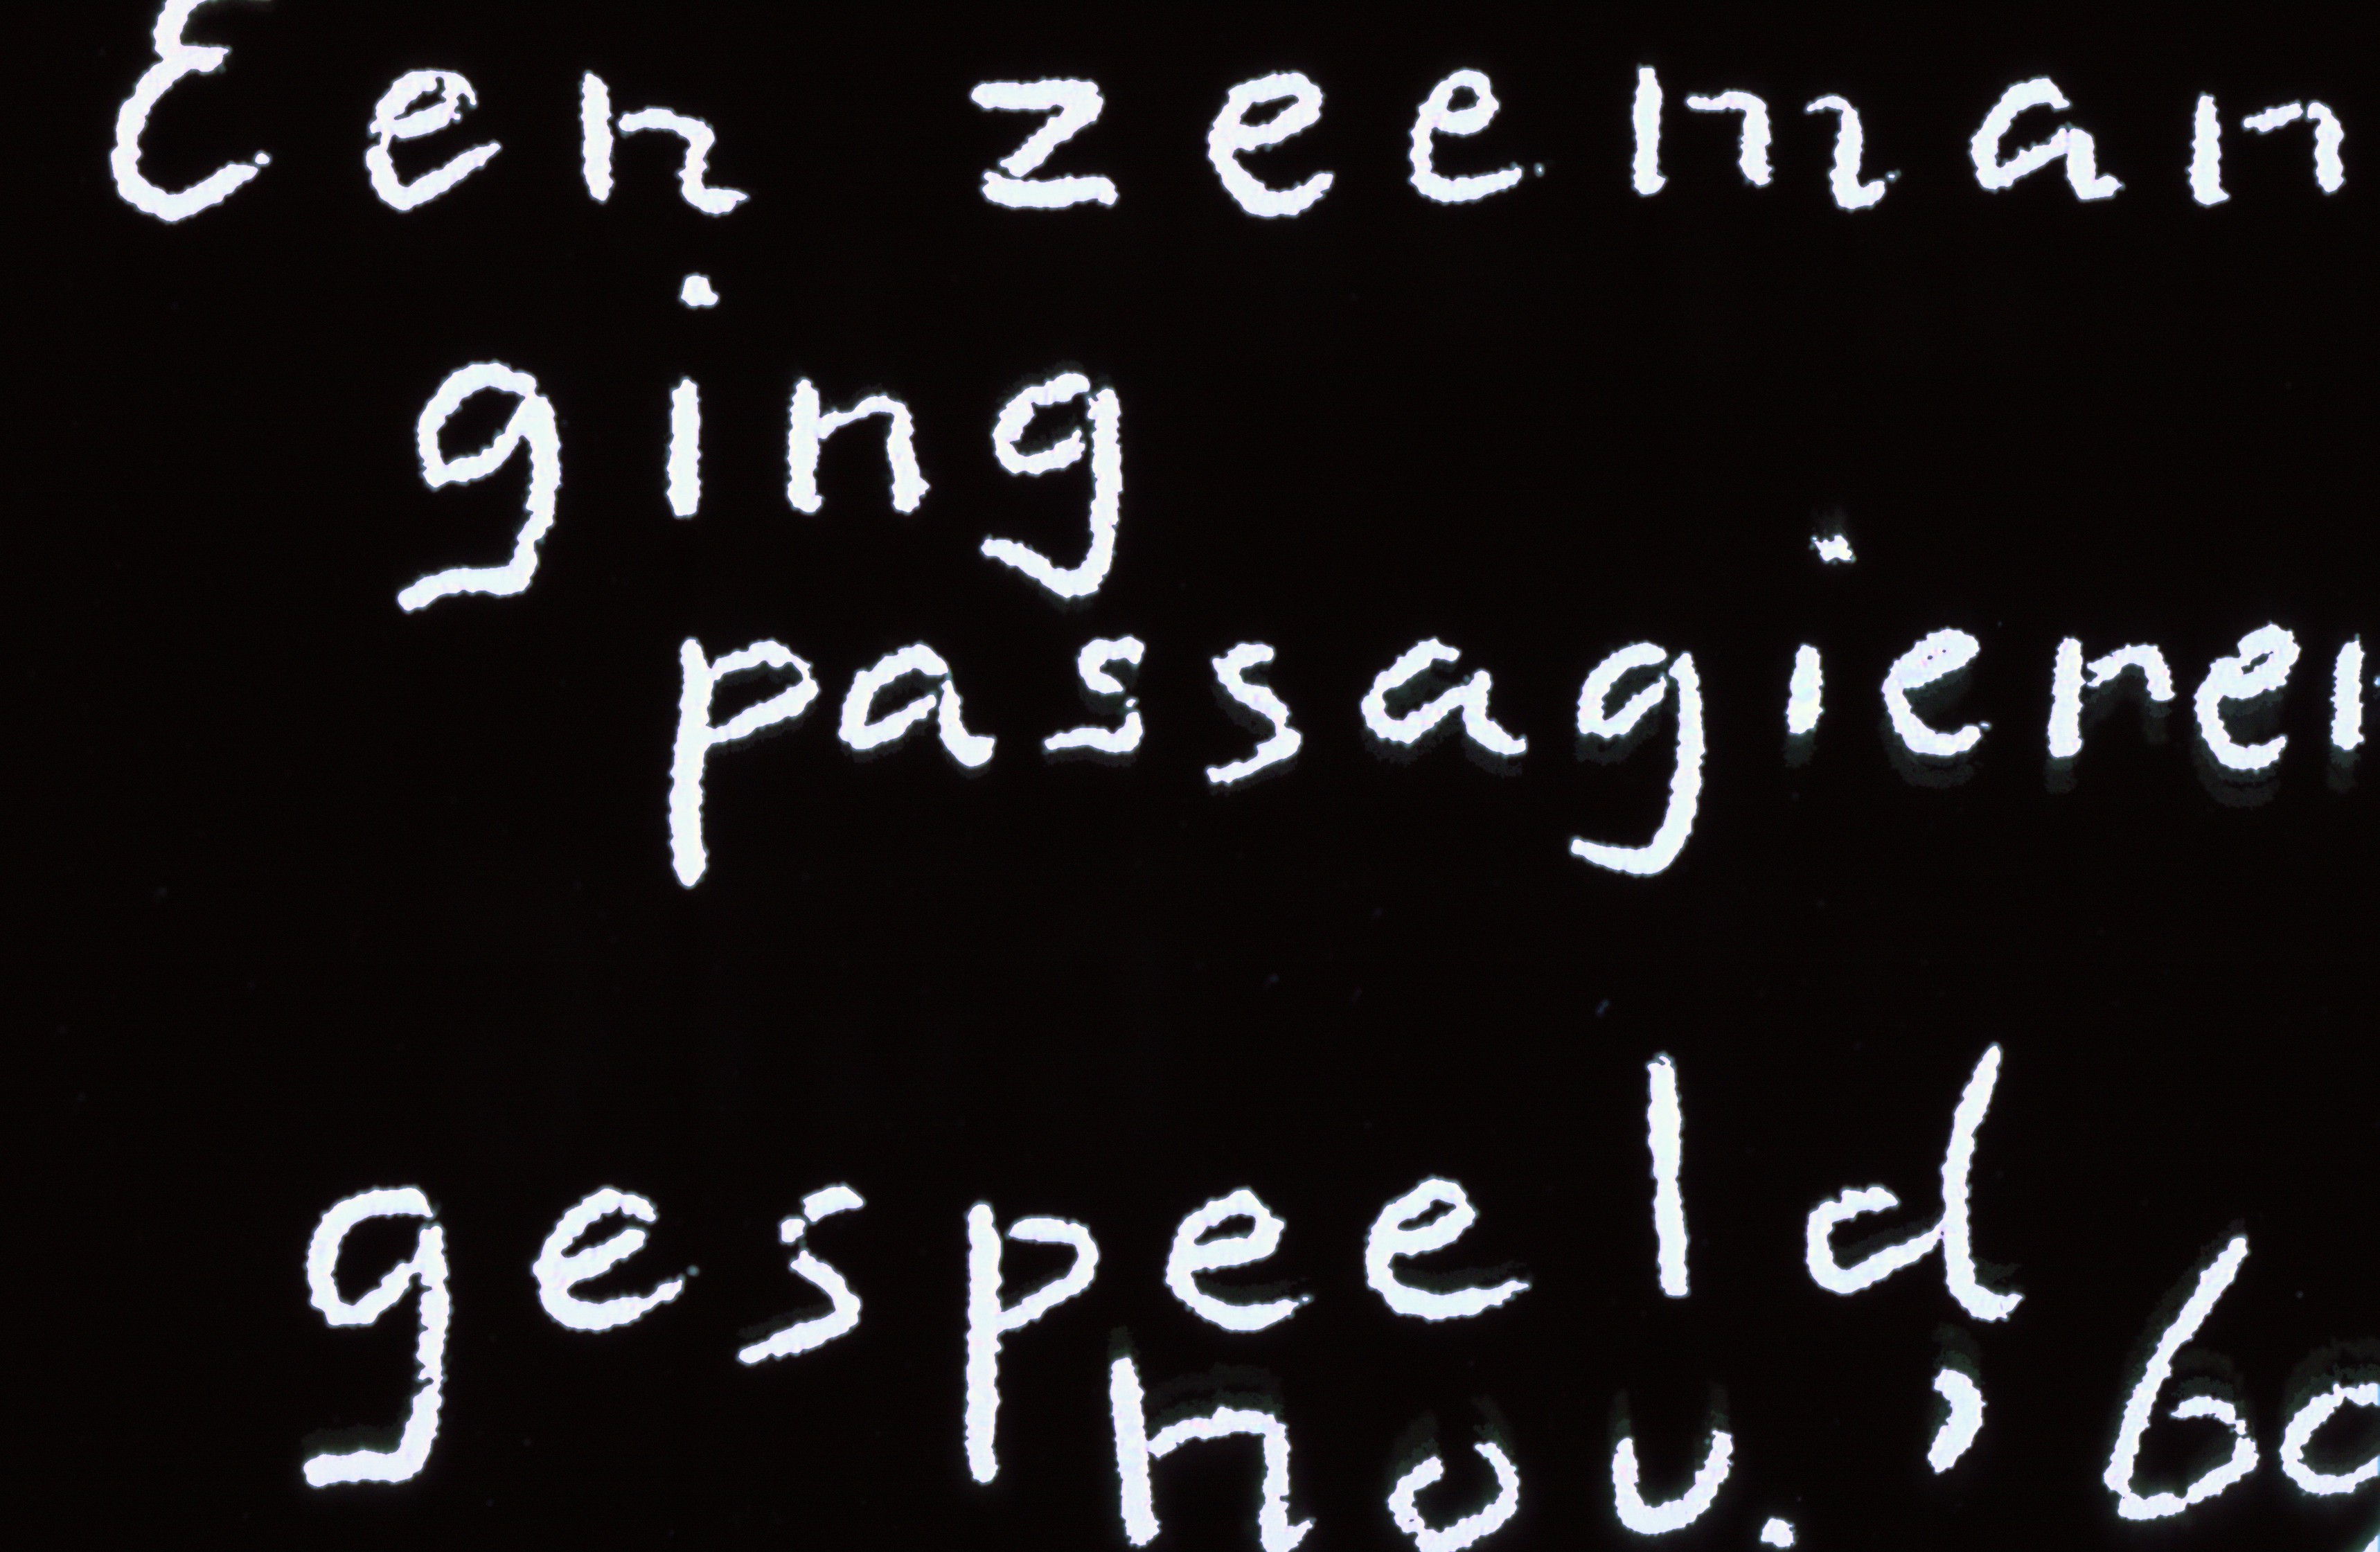 Een zeeman
ging
passagieren
gespeeld,
hou.